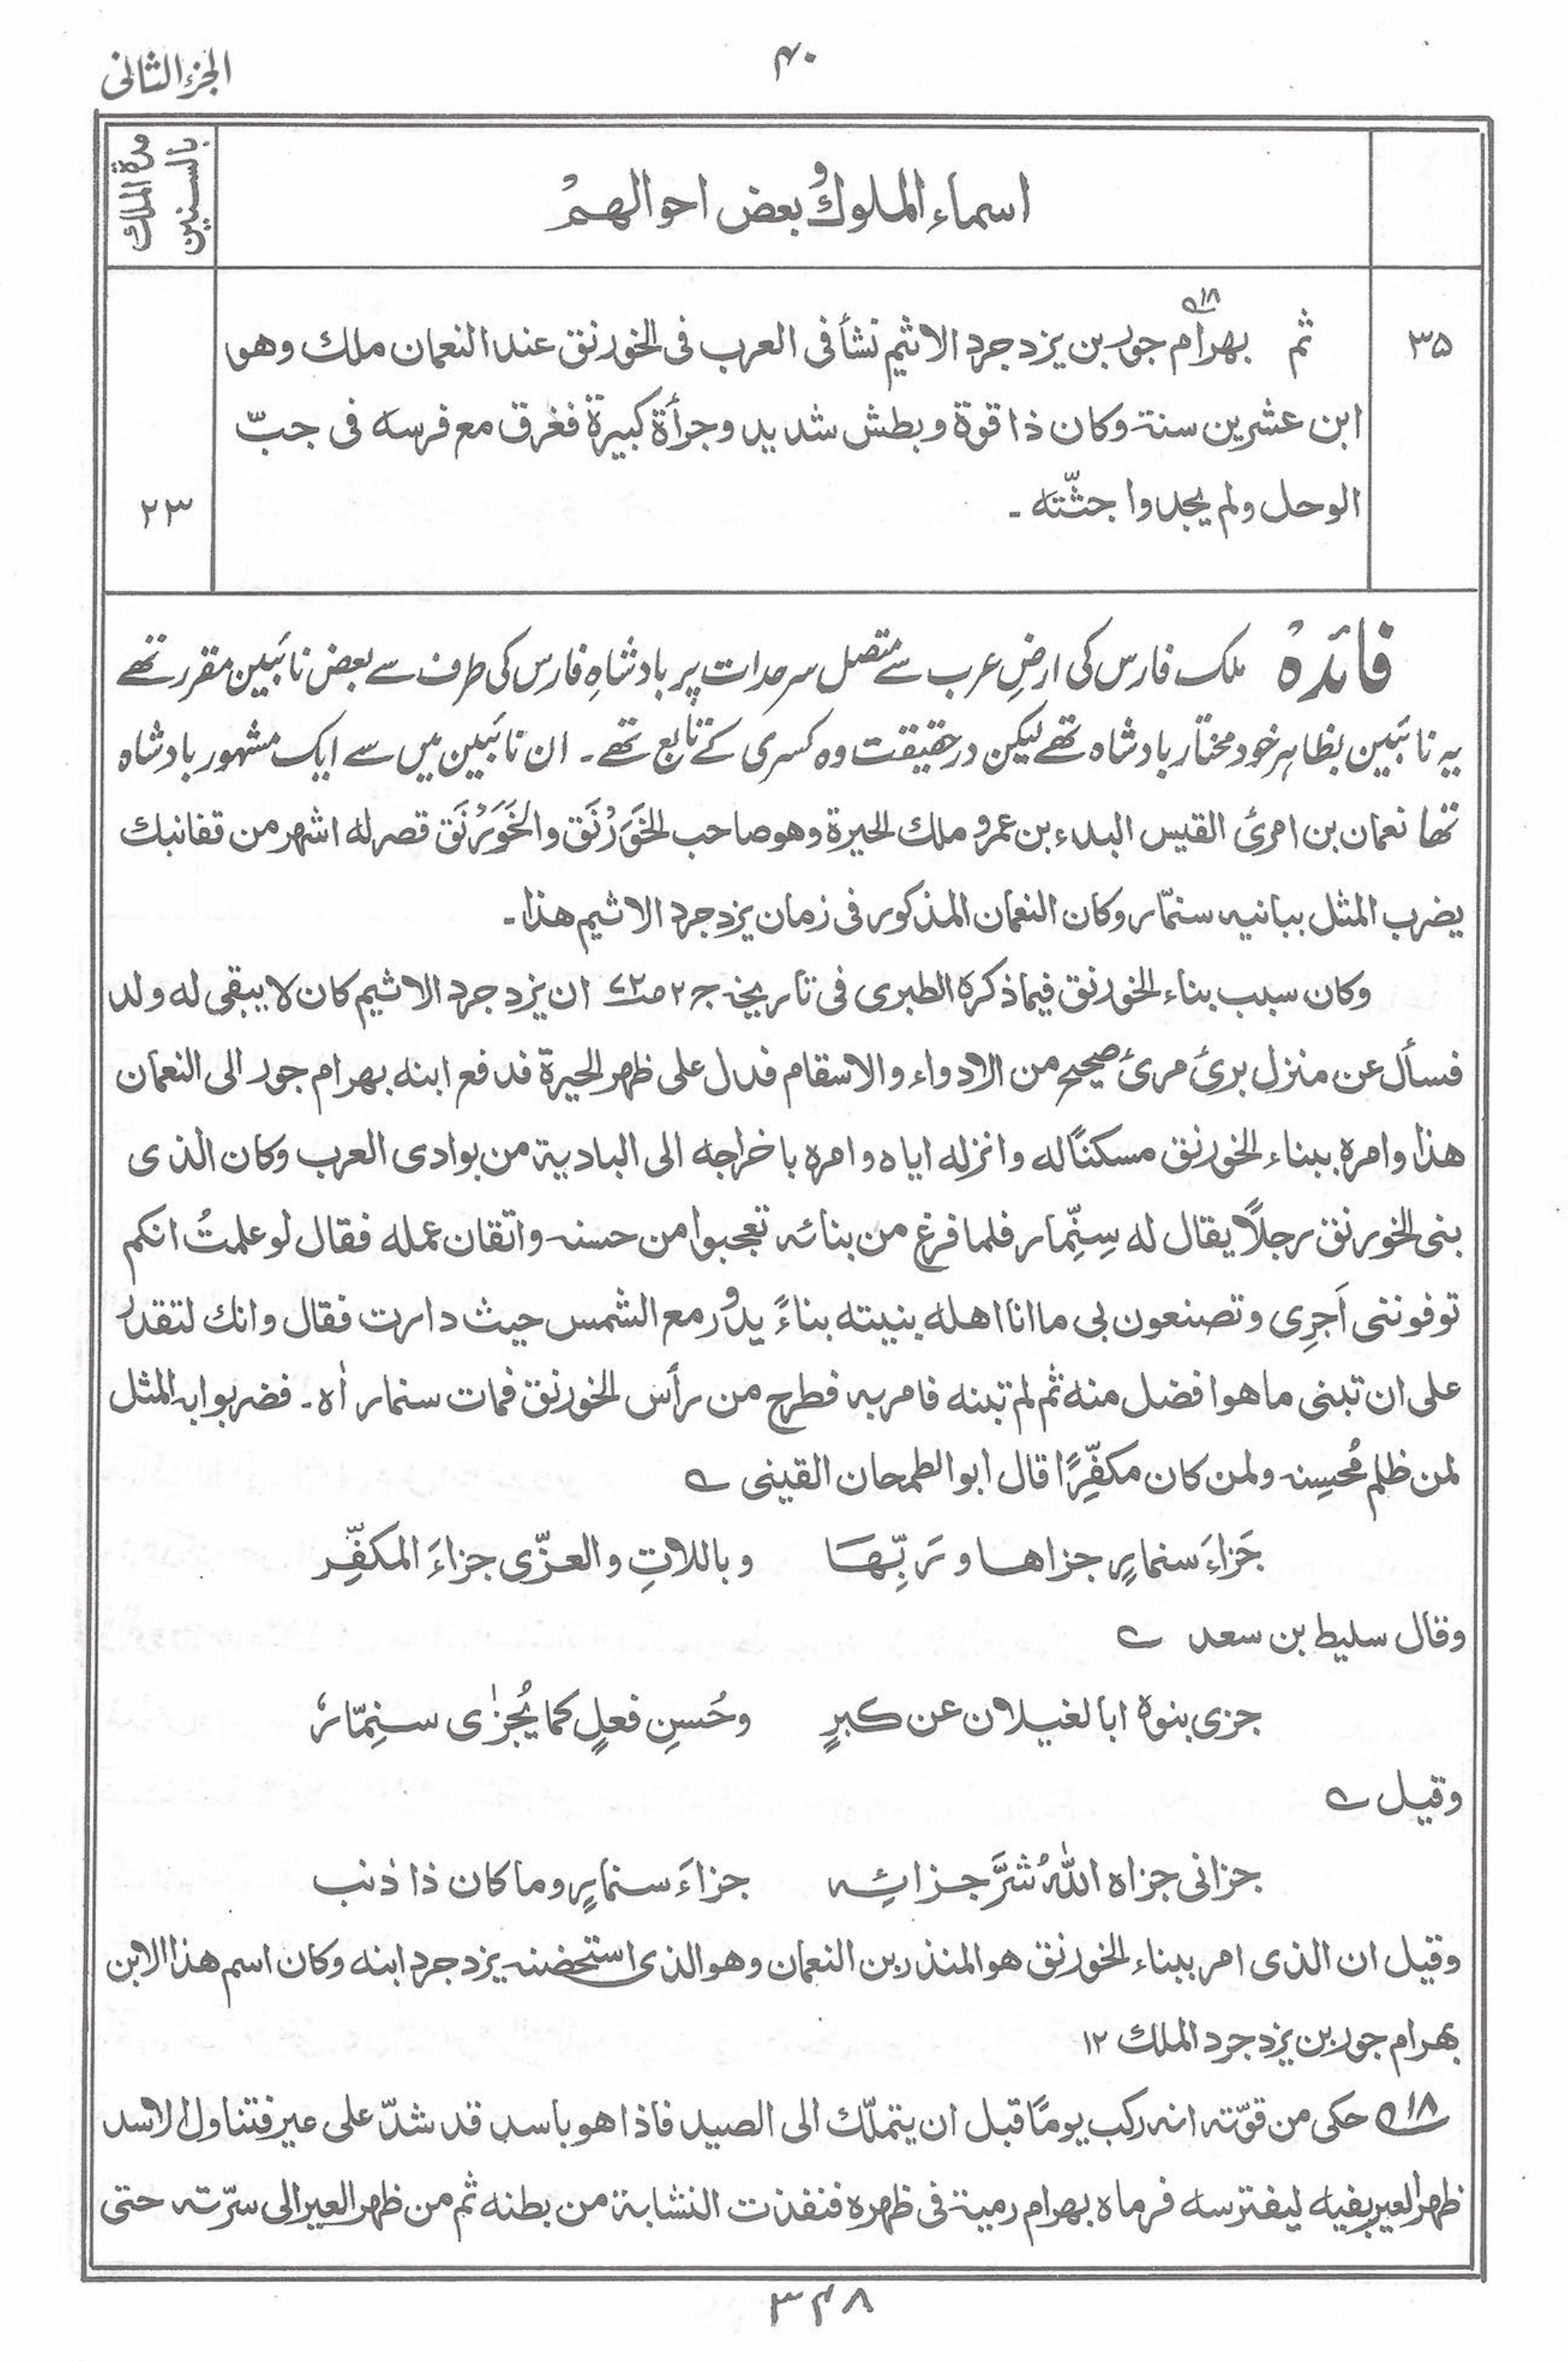 الجزء الثانی
۴۰
مدة الملك بالسنین
اسماء الملوك وبعض احوالهم
۳۵
ثم بهرام<sup>۱۸</sup> جور بن یزد جرد الاثیم نشأ فی العرب فی الخورنق عند النعمان ملك وهو
ابن عشرین سنة وكان ذا قوة وبطش شدید وجرأة كبیرة فغرق مع فرسه فی جبّ
الوحل ولم یجدوا جثّته ۔
۲۳
فائدہ ملک فارس کی ارضِ عرب سے متصل سرحدات پر بادشاہِ فارس کی طرف سے بعض نائبین مقرر تھے
یہ نائبین بظاہر خود مختار بادشاہ تھے لیکن در حقیقت وہ کسری کے تابع تھے۔ ان نائبین میں سے ایک مشہور بادشاہ
تھا نعمان بن امرئ القیس البدء بن عمرو ملك الحیرة وهو صاحب الخَوَرْنَق والخَوَرْنَق قصر له اشهر من قفانبك
یضرب المثل ببانیه سنمّار وكان النعمان المذكور فی زمان یزد جرد الاثیم هذا۔
وكان سبب بناء الخورنق فیما ذكره الطبری فی تاریخه ج۲ ص۷۲ ان یزد جرد الاثیم كان لا یبقی له ولد
فسأل عن منزل برئ مرئ صحیح من الادواء والاسقام فدل علی ظهر الحیرة فدفع ابنه بهرام جور الی النعمان
هذا وامره ببناء الخورنق مسكنًا له وانزله ایاه وامره باخراجه الی البادیة من بوادی العرب وكان الذی
بنی الخورنق رجلًا یقال له سِنِمّار فلما فرغ من بنائه تعجبوا من حسنه واتقان عمله فقال لو علمتُ انكم
توفوننی اَجرِی وتصنعون بی ما انا اهله بنیته بناءً یدُور مع الشمس حیث دارت فقال وانك لتقدر
علی ان تبنی ما هو افضل منه ثم لم تبنه فامر به فطرح من رأس الخورنق فمات سنمار اٰه۔ فضربوا به المثل
لمن ظلم مُحسِنه ولمن كان مكفِّرًا قال ابو الطمحان القینی ؎
جَزاءَ سنمارٍ جزاها ورَبِّهَا وباللاتِ والعزّی جزاءَ المكفِّرِ
وقال سلیط بن سعد ؎
جزی بنوه ابا لغیلان عن كبرٍ وحُسنِ فعلٍ كما یُجزٰی سنِمّارُ
وقیل ؎
جزانی جزاه اللّٰهُ شرَّ جزائِه جزاءَ سنمارٍ وما كان ذا ذنب
وقیل ان الذی امر ببناء الخورنق هو المنذر بن النعمان وهو الذی استحضنه یزد جرد ابنه وكان اسم هذا الابن
بهرام جور بن یزد جرد الملك ۱۲
۱۸؎ حكی من قوّته انه ركب یومًا قبل ان یتملّك الی الصید فاذا هو باسد قد شدّ علی عیر فتناول الاسد
ظهر العیر بفیه لیفترسه فرماه بهرام رمیة فی ظهره فنفذت النشابة من بطنه ثم من ظهر العیر الی سرّته حتی
۳۴۸